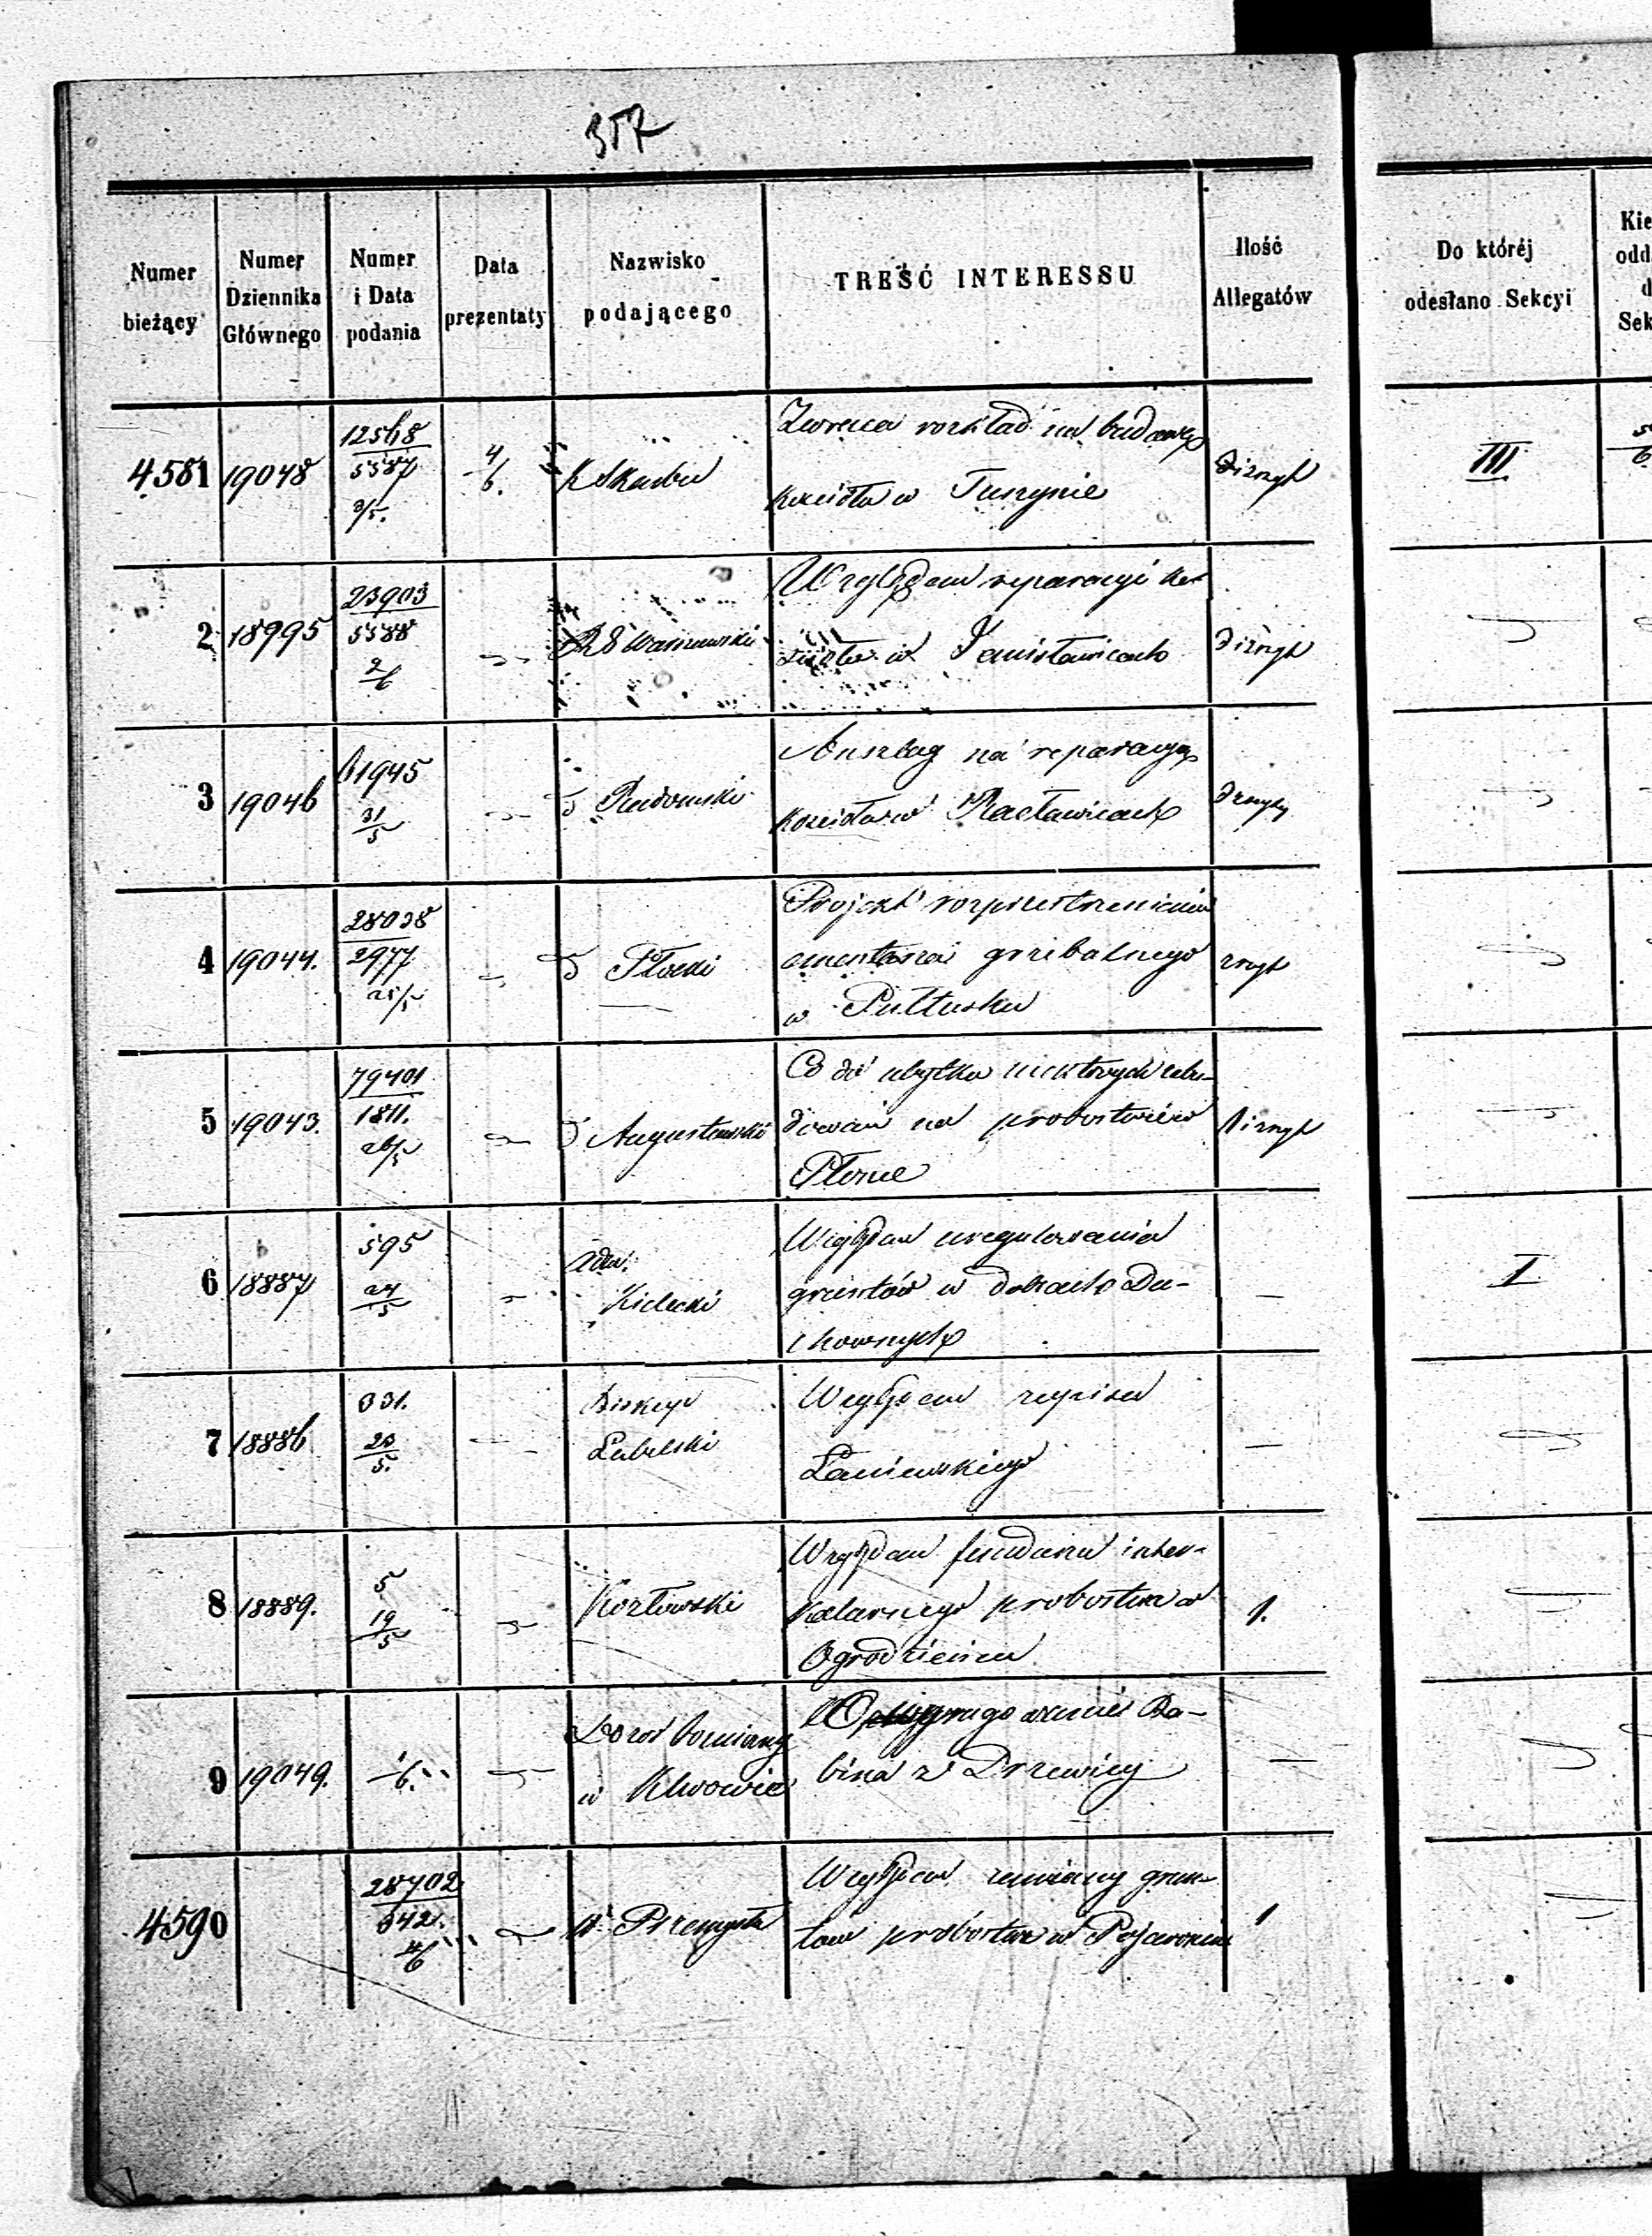 357
Numer bieżący
Numer Dziennika Głównego
Numer i Data podania
Data prezentaty
Nazwisko podającego
TREŚĆ INTERESSU
Ilość Allegatów
Do któréj odesłano Sekcyi
4581 19048 12568 5587 3/5. 4/6. K Skarbu
Zwraca rozkład na budowę
kościoła w Tuszynie
III
2 18995 23903 5588 2/6 R G Warszawski
Względem reparacyi koś
cioła w
3 19046 61945 31/5 Radomski
Anszlag na reparacyę
kościoła w Racławicach
4 19044. 28038 2977 25/5 Płocki
Projekt rozprzestrzenienia
cmentarza grzebalnego
w Pułtusku
5 19043. 79401 1811. 26/5 Augustowski
Co do użytku niektórych zabu-
dowań na probostwie w
Płonce
6 18887 595 27/5 Adm. Kielecki
Względem uregulowania
gruntów w dobrach Du-
chownych
I
7 18886 331. 23/5. Biskup Lubelski
Względem zapisu
Łaniewskiego
8 18889. 5 19/5 Kozłowski
Względem funduszu inter-
kalarnego probostwa w
Ogrodzieńcu
1.
9 19049. 1/6. Dozór Bożniczy
w Klwowie
bina z Drzewicy
4590 28702 642. 4/6
Względem zamiany grun-
tów probostwa w
1